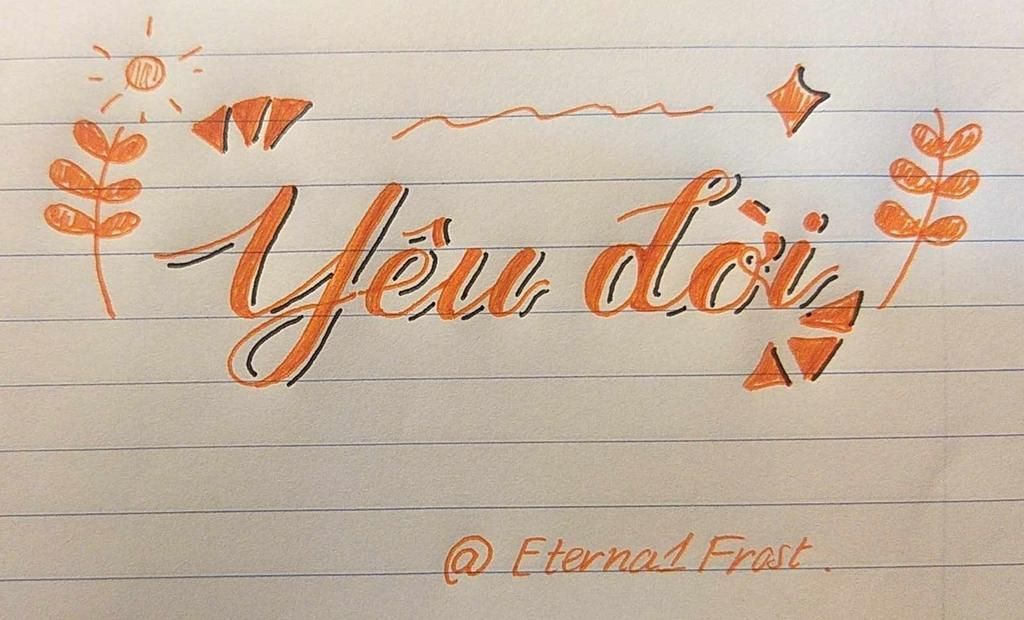 Yêu đời
@ Eterna1 Frost.